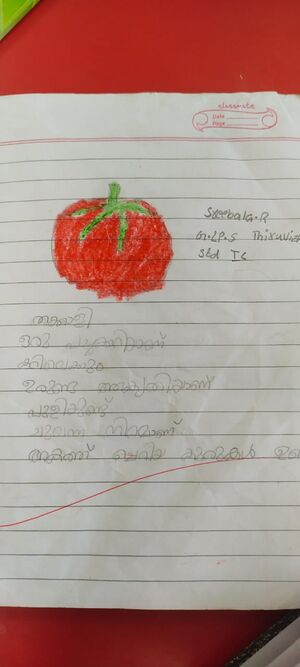 classmate
Date
Page
Sreebala G.R
G.L.P.S
Std I C
തക്കാളി
ഒരു പച്ചക്കറിയാണ്
ഉരുണ്ട ആകൃതിയാണ്
പുളിയുണ്ട്
ചുവന്ന നിറമാണ്
അകത്ത് ചെറിയ കുരുകൾ